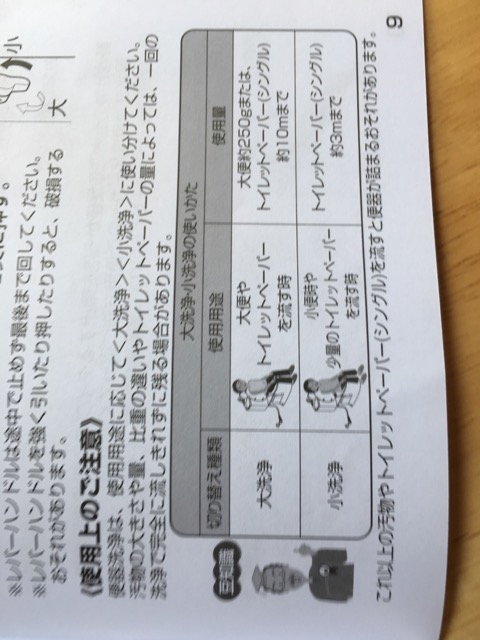 小
大
※レバーハンドルは途中で止めず最後まで回してください。
※レバーハンドルを強く引いたり押したりすると、破損する
おそれがあります。
《使用上のご注意》
便器洗浄は、使用用途に応じて<大洗浄><小洗浄>に使い分けてください。
汚物の大きさや量、比重の違いやトイレットペーパーの量によっては、一回の
洗浄で完全に流しきれずに残る場合があります。
大洗浄・小洗浄の使いかた
切り替え種類 使用用途 使用量
大洗浄
大便や
トイレットペーパー
を流す時
大便約250gまたは、
トイレットペーパー(シングル)
約10mまで
小洗浄
小便時や
少量のトイレットペーパー
を流す時
トイレットペーパー(シングル)
約3mまで
豆知識
これ以上の汚物やトイレットペーパー(シングル)を流すと便器が詰まるおそれがあります。
9